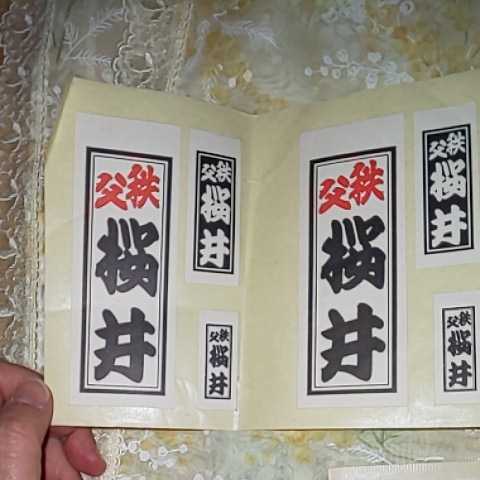 秩父
桜井
秩父
桜井
秩父
桜井
秩父
桜井
秩父
桜井
秩父
桜井